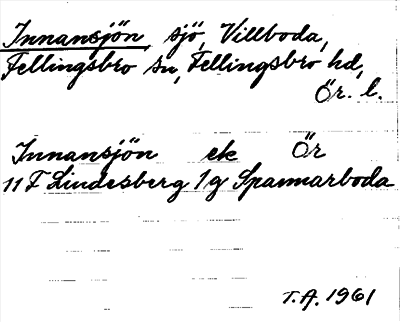 Innansjön, sjö, Villboda,
Fellingsbro sn, Fellingsbro hd,
Ör. l.
Innansjön ek Ör
11 F Lindesberg 1g Spannarboda
T.A. 1961